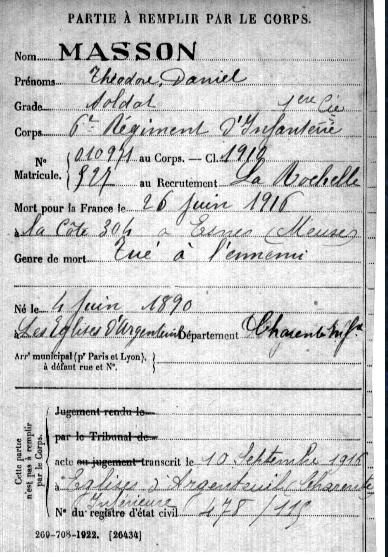 PARTIE À REMPLIR PAR LE CORPS.
Nom MASSON
Prénoms Théodore, Daniel
Grade Soldat 1ere Cie
Corps 6e Régiment d'Infanterie
N° Matricule. { 010971 au Corps. — Cl. 1912
927 au Recrutement La Rochelle
Mort pour la France le 26 juin 1916
à la Côte 304 à Esnes (Meuse)
Genre de mort Tué à l'ennemi
Né le 4 juin 1890
à Les Eglises d'Argenteuil Département Charente Infre
Arrt municipal (pr Paris et Lyon),
à défaut rue et N°.
Cette partie n'est pas à remplir par le Corps.
Jugement rendu le
par le Tribunal de
acte ou jugement transcrit le 10 Septembre 1916
à Eglises d'Argenteuil Charente
Inférieure
N° du registre d'état civil 478/
269-708-1922. [26434]